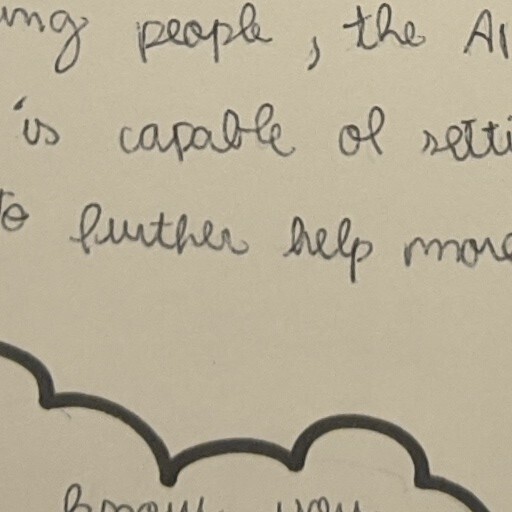 ing people, the AI
is capable of setti
to further help more
know you